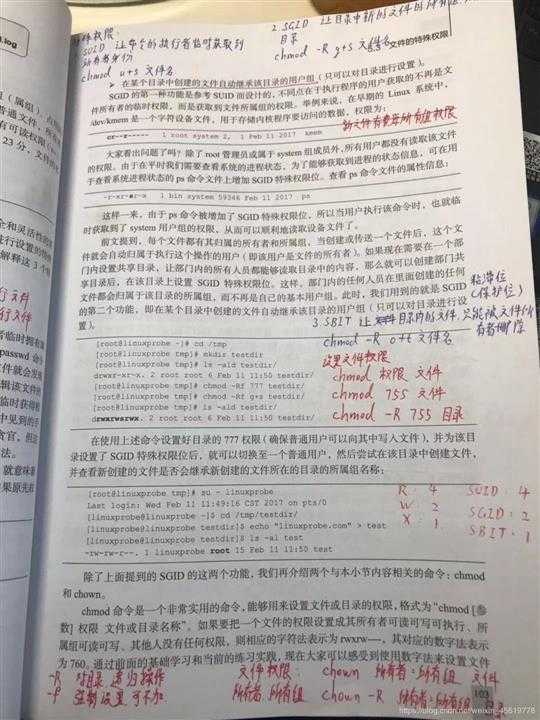 件权限:
SUID 让命令的执行者临时获取到
所有者身份
chmod u+s 文件名
2. SGID 让目录中新的文件的所有
目录
chmod -R g+s 文件名
文件的特殊权限
➢ 在某个目录中创建的文件自动继承该目录的用户组（只可以对目录进行设置）。
SGID 的第一种功能是参考 SUID 而设计的，不同点在于执行程序的用户获取的不再是文
件所有者的临时权限，而是获取到文件所属组的权限。举例来说，在早期的 Linux 系统中，
/dev/kmem 是一个字符设备文件，用于存储内核程序要访问的数据，权限为：
cr--r----- 1 root system 2, 1 Feb 11 2017 kmem
大家看出问题了吗？除了 root 管理员或属于 system 组成员外，所有用户都没有读取该文件
的权限。由于在平时我们需要查看系统的进程状态，为了能够获取到进程的状态信息，可在用
于查看系统进程状态的 ps 命令文件上增加 SGID 特殊权限位。查看 ps 命令文件的属性信息：
-r-xr-sr-x 1 bin system 59346 Feb 11 2017 ps
这样一来，由于 ps 命令被增加了 SGID 特殊权限位，所以当用户执行该命令时，也就临
时获取到了 system 用户组的权限，从而可以顺利地读取设备文件了。
前文提到，每个文件都有其归属的所有者和所属组，当创建或传送一个文件后，这个文
件就会自动归属于执行这个操作的用户（即该用户是文件的所有者）。如果现在需要在一个部
门内设置共享目录，让部门内的所有人员都能够读取目录中的内容，那么就可以创建部门共
享目录后，在该目录上设置 SGID 特殊权限位。这样，部门内的任何人员在里面创建的任何
文件都会归属于该目录的所属组，而不再是自己的基本用户组。此时，我们用到的就是 SGID
的第二个功能，即在某个目录中创建的文件自动继承该目录的用户组（只可以对目录进行设
置）。
粘滞位
(保护位)
3. SBIT 让目录内的文件只能被文件所
有者删除
chmod -R o+t 文件名
[root@linuxprobe ~]# cd /tmp
[root@linuxprobe tmp]# mkdir testdir
[root@linuxprobe tmp]# ls -ald testdir/
drwxr-xr-x. 2 root root 6 Feb 11 11:50 testdir/
[root@linuxprobe tmp]# chmod -Rf 777 testdir/
[root@linuxprobe tmp]# chmod -Rf g+s testdir/
[root@linuxprobe tmp]# ls -ald testdir/
drwxrwsrwx. 2 root root 6 Feb 11 11:50 testdir/
文件权限
chmod 权限 文件
chmod 755 文件
chmod -R 755 目录
在使用上述命令设置好目录的 777 权限（确保普通用户可以向其中写入文件），并为该目
录设置了 SGID 特殊权限位后，就可以切换至一个普通用户，然后尝试在该目录中创建文件，
并查看新创建的文件是否会继承新创建的文件所在的目录的所属组名称：
[root@linuxprobe tmp]# su - linuxprobe
Last login: Wed Feb 11 11:49:16 CST 2017 on pts/0
[linuxprobe@linuxprobe ~]$ cd /tmp/testdir/
[linuxprobe@linuxprobe testdir]$ echo "linuxprobe.com" > test
[linuxprobe@linuxprobe testdir]$ ls -al test
-rw-rw-r--. 1 linuxprobe root 15 Feb 11 11:50 test
R: 4
W: 2
X: 1
SUID: 4
SGID: 2
SBIT: 1
除了上面提到的 SGID 的这两个功能，我们再介绍两个与本小节内容相关的命令：chmod
和 chown。
chmod 命令是一个非常实用的命令，能够用来设置文件或目录的权限，格式为“chmod [参
数] 权限 文件或目录名称”。如果要把一个文件的权限设置成其所有者可读可写可执行、所
属组可读可写、其他人没有任何权限，则相应的字符法表示为 rwxrw----，其对应的数字法表示
为 760。通过前面的基础学习和当前的练习实践，现在大家可以感受到使用数字法来设置文件
-R 对目录 递归操作
文件权限:
chown 所有者:所有组 文件
强制设置 可不加
所有者:所有组
chown -R 所有者:所有组
103
https://blog.csdn.net/weixin_45619776